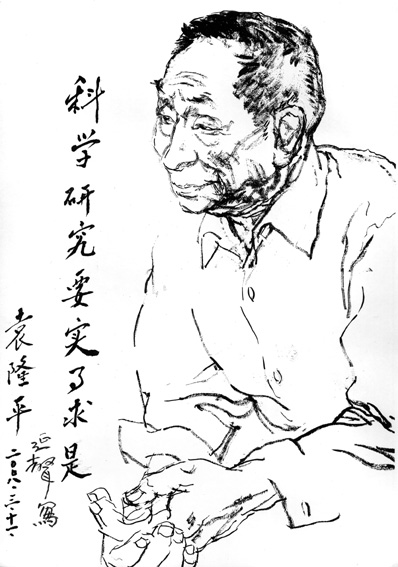 科学研究要实事求是
袁隆平
延聲寫
二〇〇八·三·十一